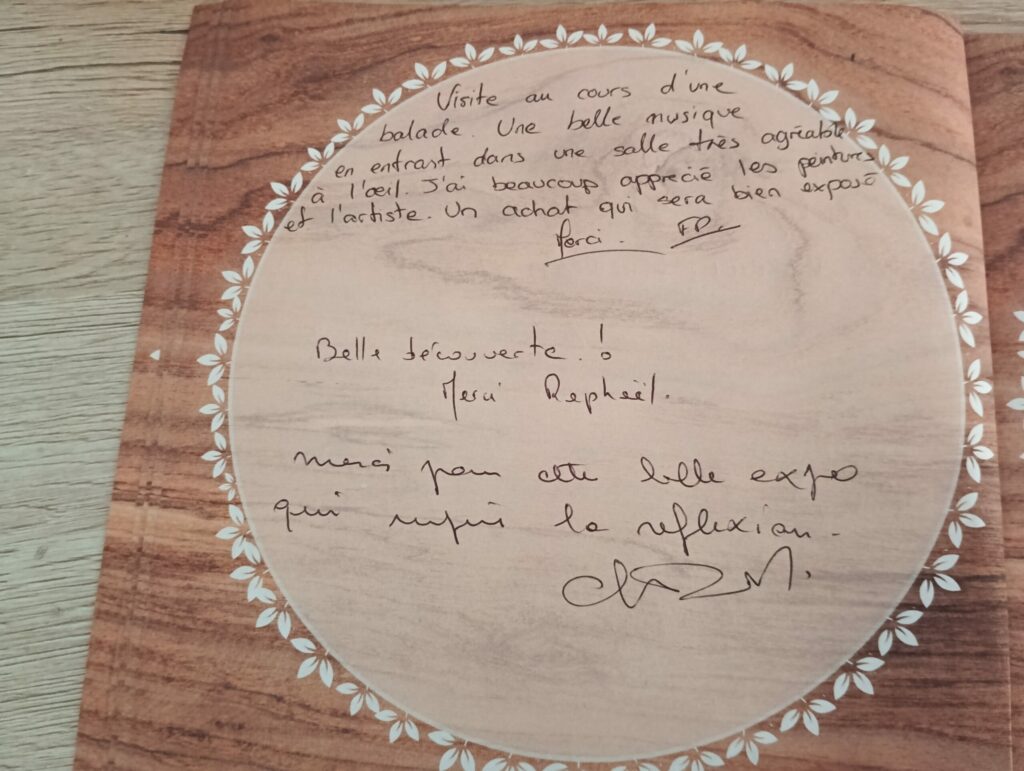 Visite au cours d'une
balade. Une belle musique
en entrast dans une salle très agréable
à l'œil. J'ai beaucoup apprecié les peintures
et l'artiste. Un achat qui sera bien exposé
Merci. FD.
Belle découverte.!
Merci Raphaël.
merci pour cette belle expo
qui la reflexion.